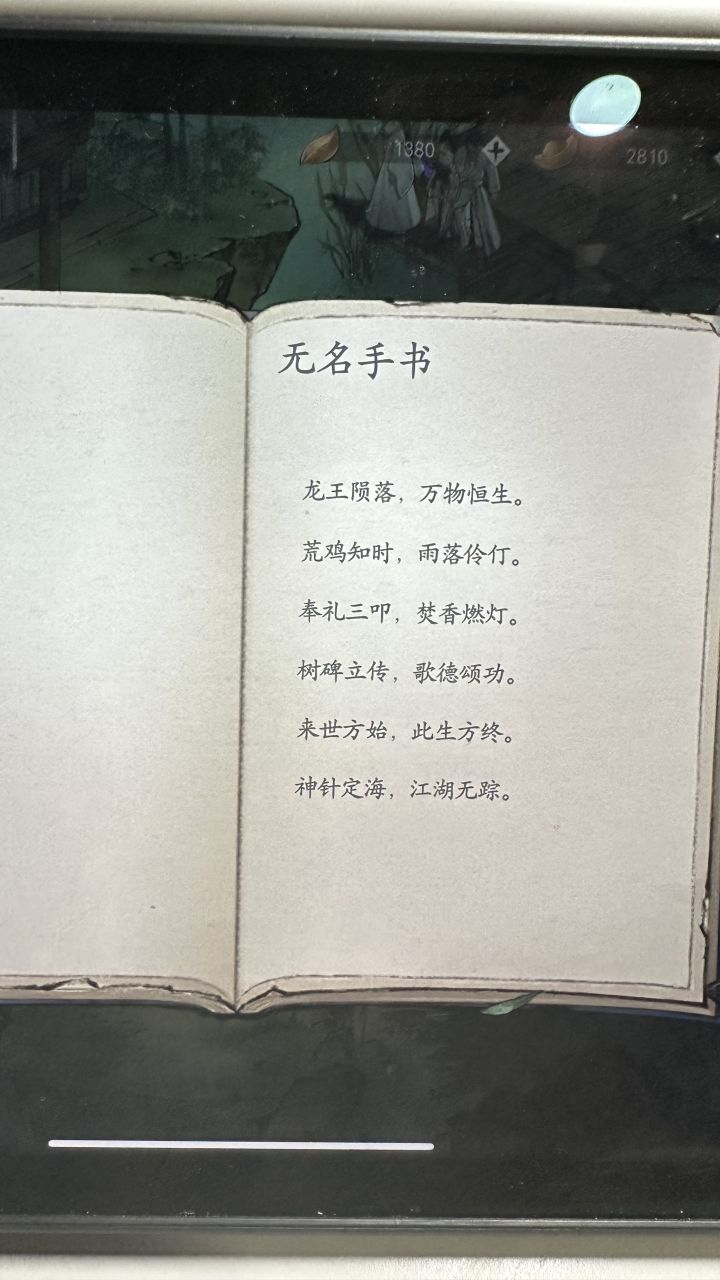 1380
2810
无名手书
龙王陨落，万物恒生。
荒鸡知时，雨落伶仃。
奉礼三叩，焚香燃灯。
树碑立传，歌德颂功。
来世方始，此生方终。
神针定海，江湖无踪。